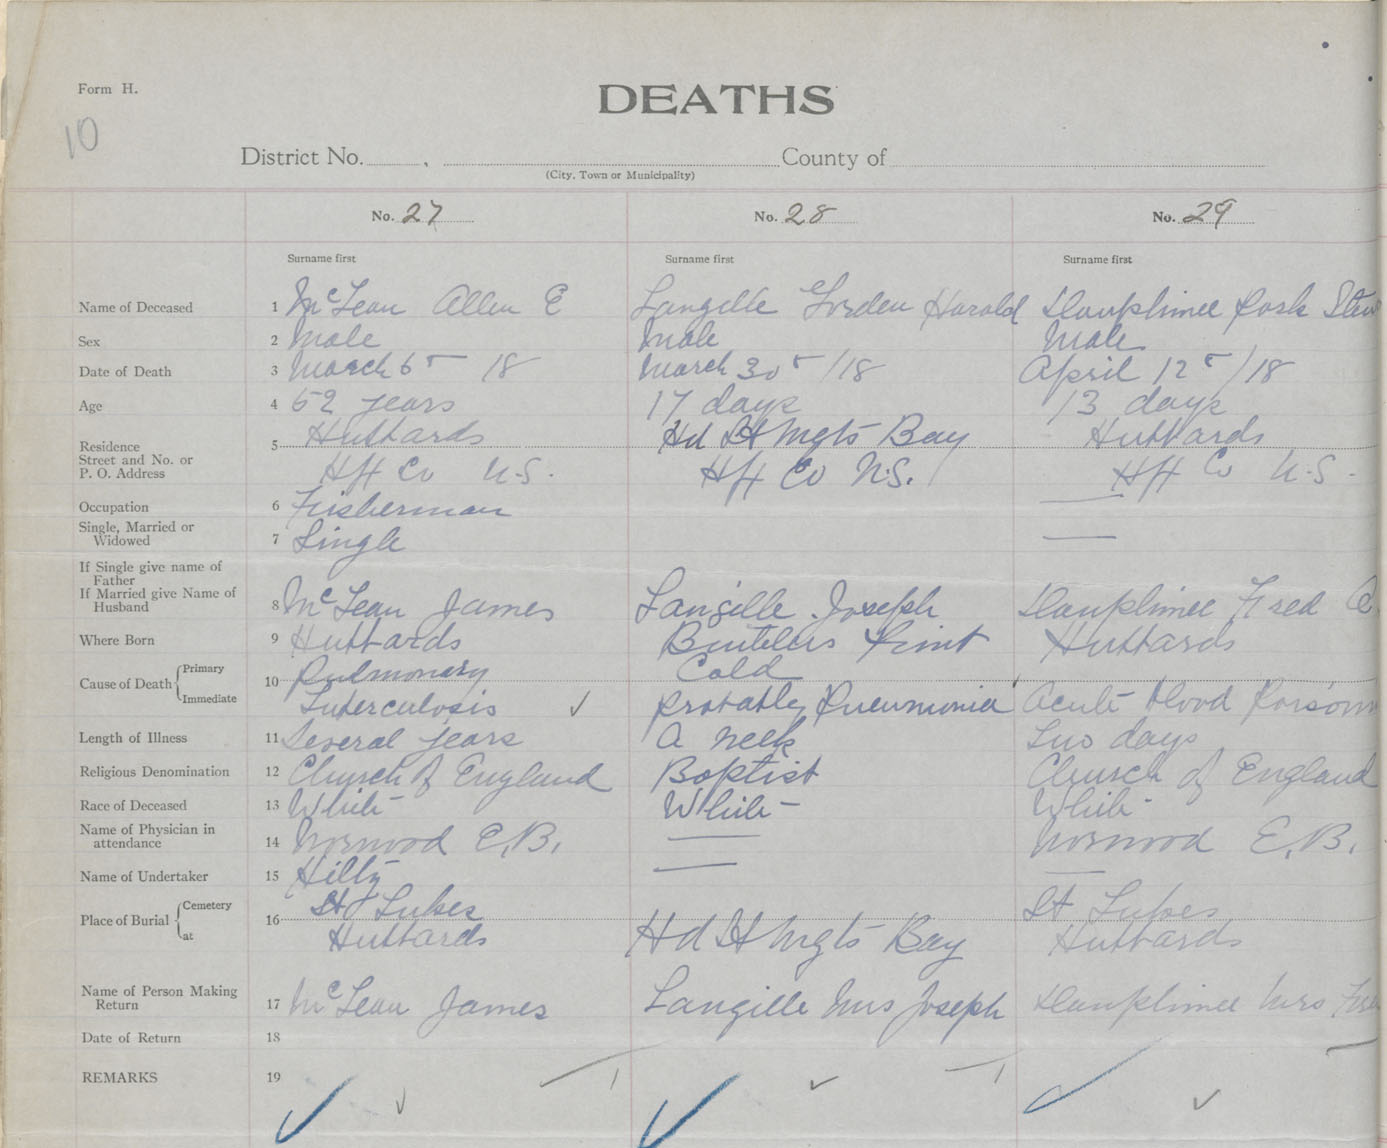 Form H.
DEATHS
10
District No. , County of
(City, Town or Municipality)
No. 27 No. 28 No. 29
Surname first Surname first Surname first
Name of Deceased 1 McLean Allen E Langille Gorden Harold
Sex 2 Male Male Male
Date of Death 3 March 6th 18 March 30th /18 April 12th /18
Age 4 62 years 17 days 13 days
Residence 5 Hubbards Hd St Mgts Bay Hubbards
Street and No. or
P. O. Address Hfx Co N.S. Hfx Co N.S. Hfx Co N.S.
Occupation 6 Fisherman —
Single, Married or
Widowed 7 Single —
If Single give name of
Father
If Married give Name of
Husband 8 McLean James Langille Joseph Fred
Where Born 9 Hubbards Boutilers Point Hubbards
Cause of Death Primary 10 Pulmonary Cold
Immediate Tuberculosis ✓ probably Pneumonia Acute Blood
Length of Illness 11 Several years A week Two days
Religious Denomination 12 Church of England Baptist Church of England
Race of Deceased 13 White White White
Name of Physician in
attendance 14 Norwood E.B. — Norwood E.B.
Name of Undertaker 15 Hiltz — —
Place of Burial Cemetery 16 St Lukes St Lukes
at Hubbards Hd St Mgts Bay Hubbards
Name of Person Making
Return 17 McLean James Langille Mrs Joseph Mrs
Date of Return 18
REMARKS 19